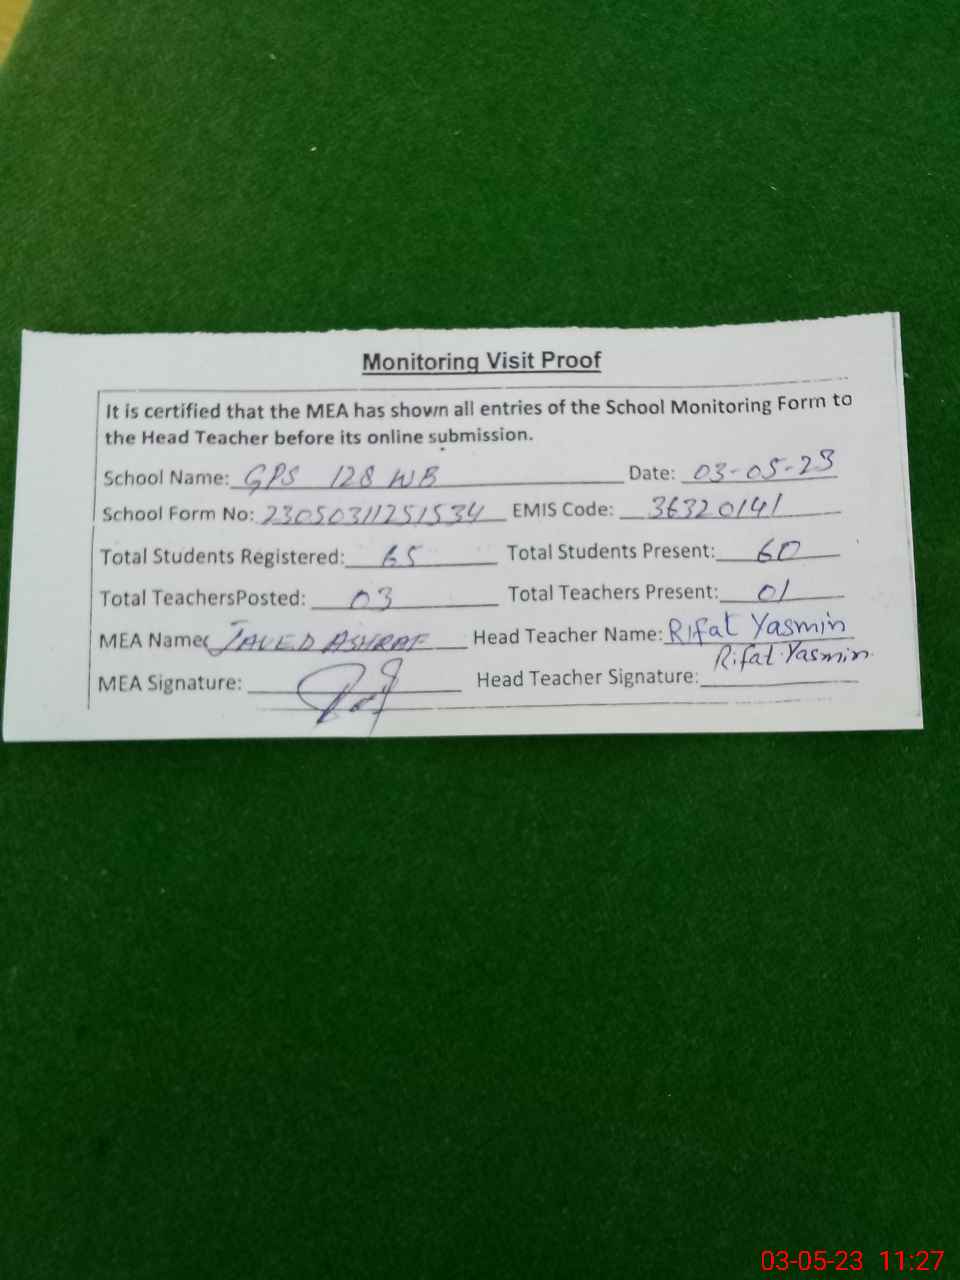 Monitoring Visit Proof
It is certified that the MEA has shown all entries of the School Monitoring Form to
the Head Teacher before its online submission.
School Name: GPS 128 WB Date: 03-05-23
School Form No: 23050311251534 EMIS Code: 36320141
Total Students Registered: 65 Total Students Present: 60
Total TeachersPosted: 03 Total Teachers Present: 01
MEA Name: JAVED ASHRAF Head Teacher Name: Rifat Yasmin
MEA Signature: Head Teacher Signature: Rifat Yasmin
03-05-23 11:27